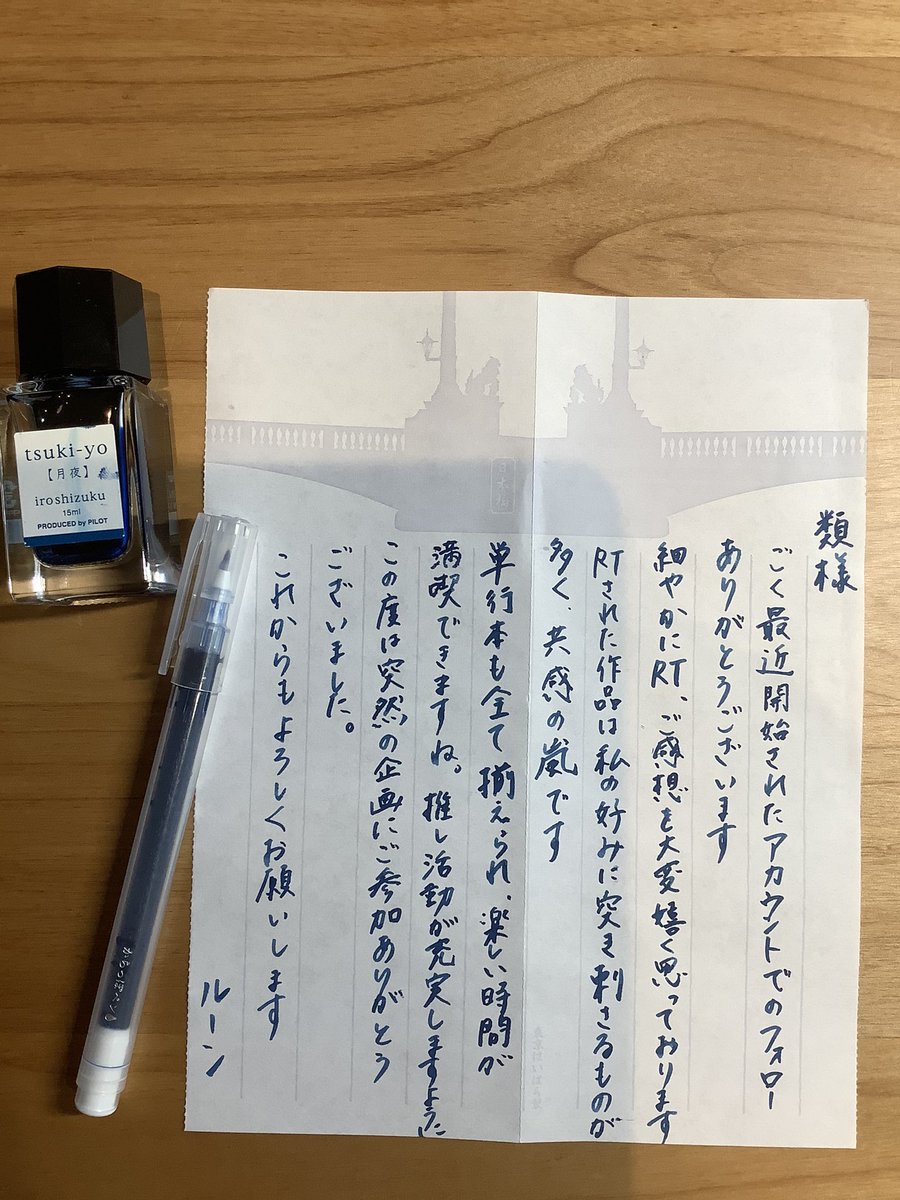 類様
ごく最近開始されたアカウントでのフォロー
ありがとうございます
細やかにRT、ご感想を大変嬉く思っております
RTされた作品は私の好みに突き刺さるものが
多く、共感の嵐です
単行本も全て揃えられ、楽しい時間が
満喫できますね。推し活動が充実しますように
この度は突然の企画にご参加ありがとう
ございました。
これからもよろしくお願いします
ルーン
tsuki-yo
【月夜】
iroshizuku
15ml
PRODUCED by PILOT
からっぽペン
日本橋